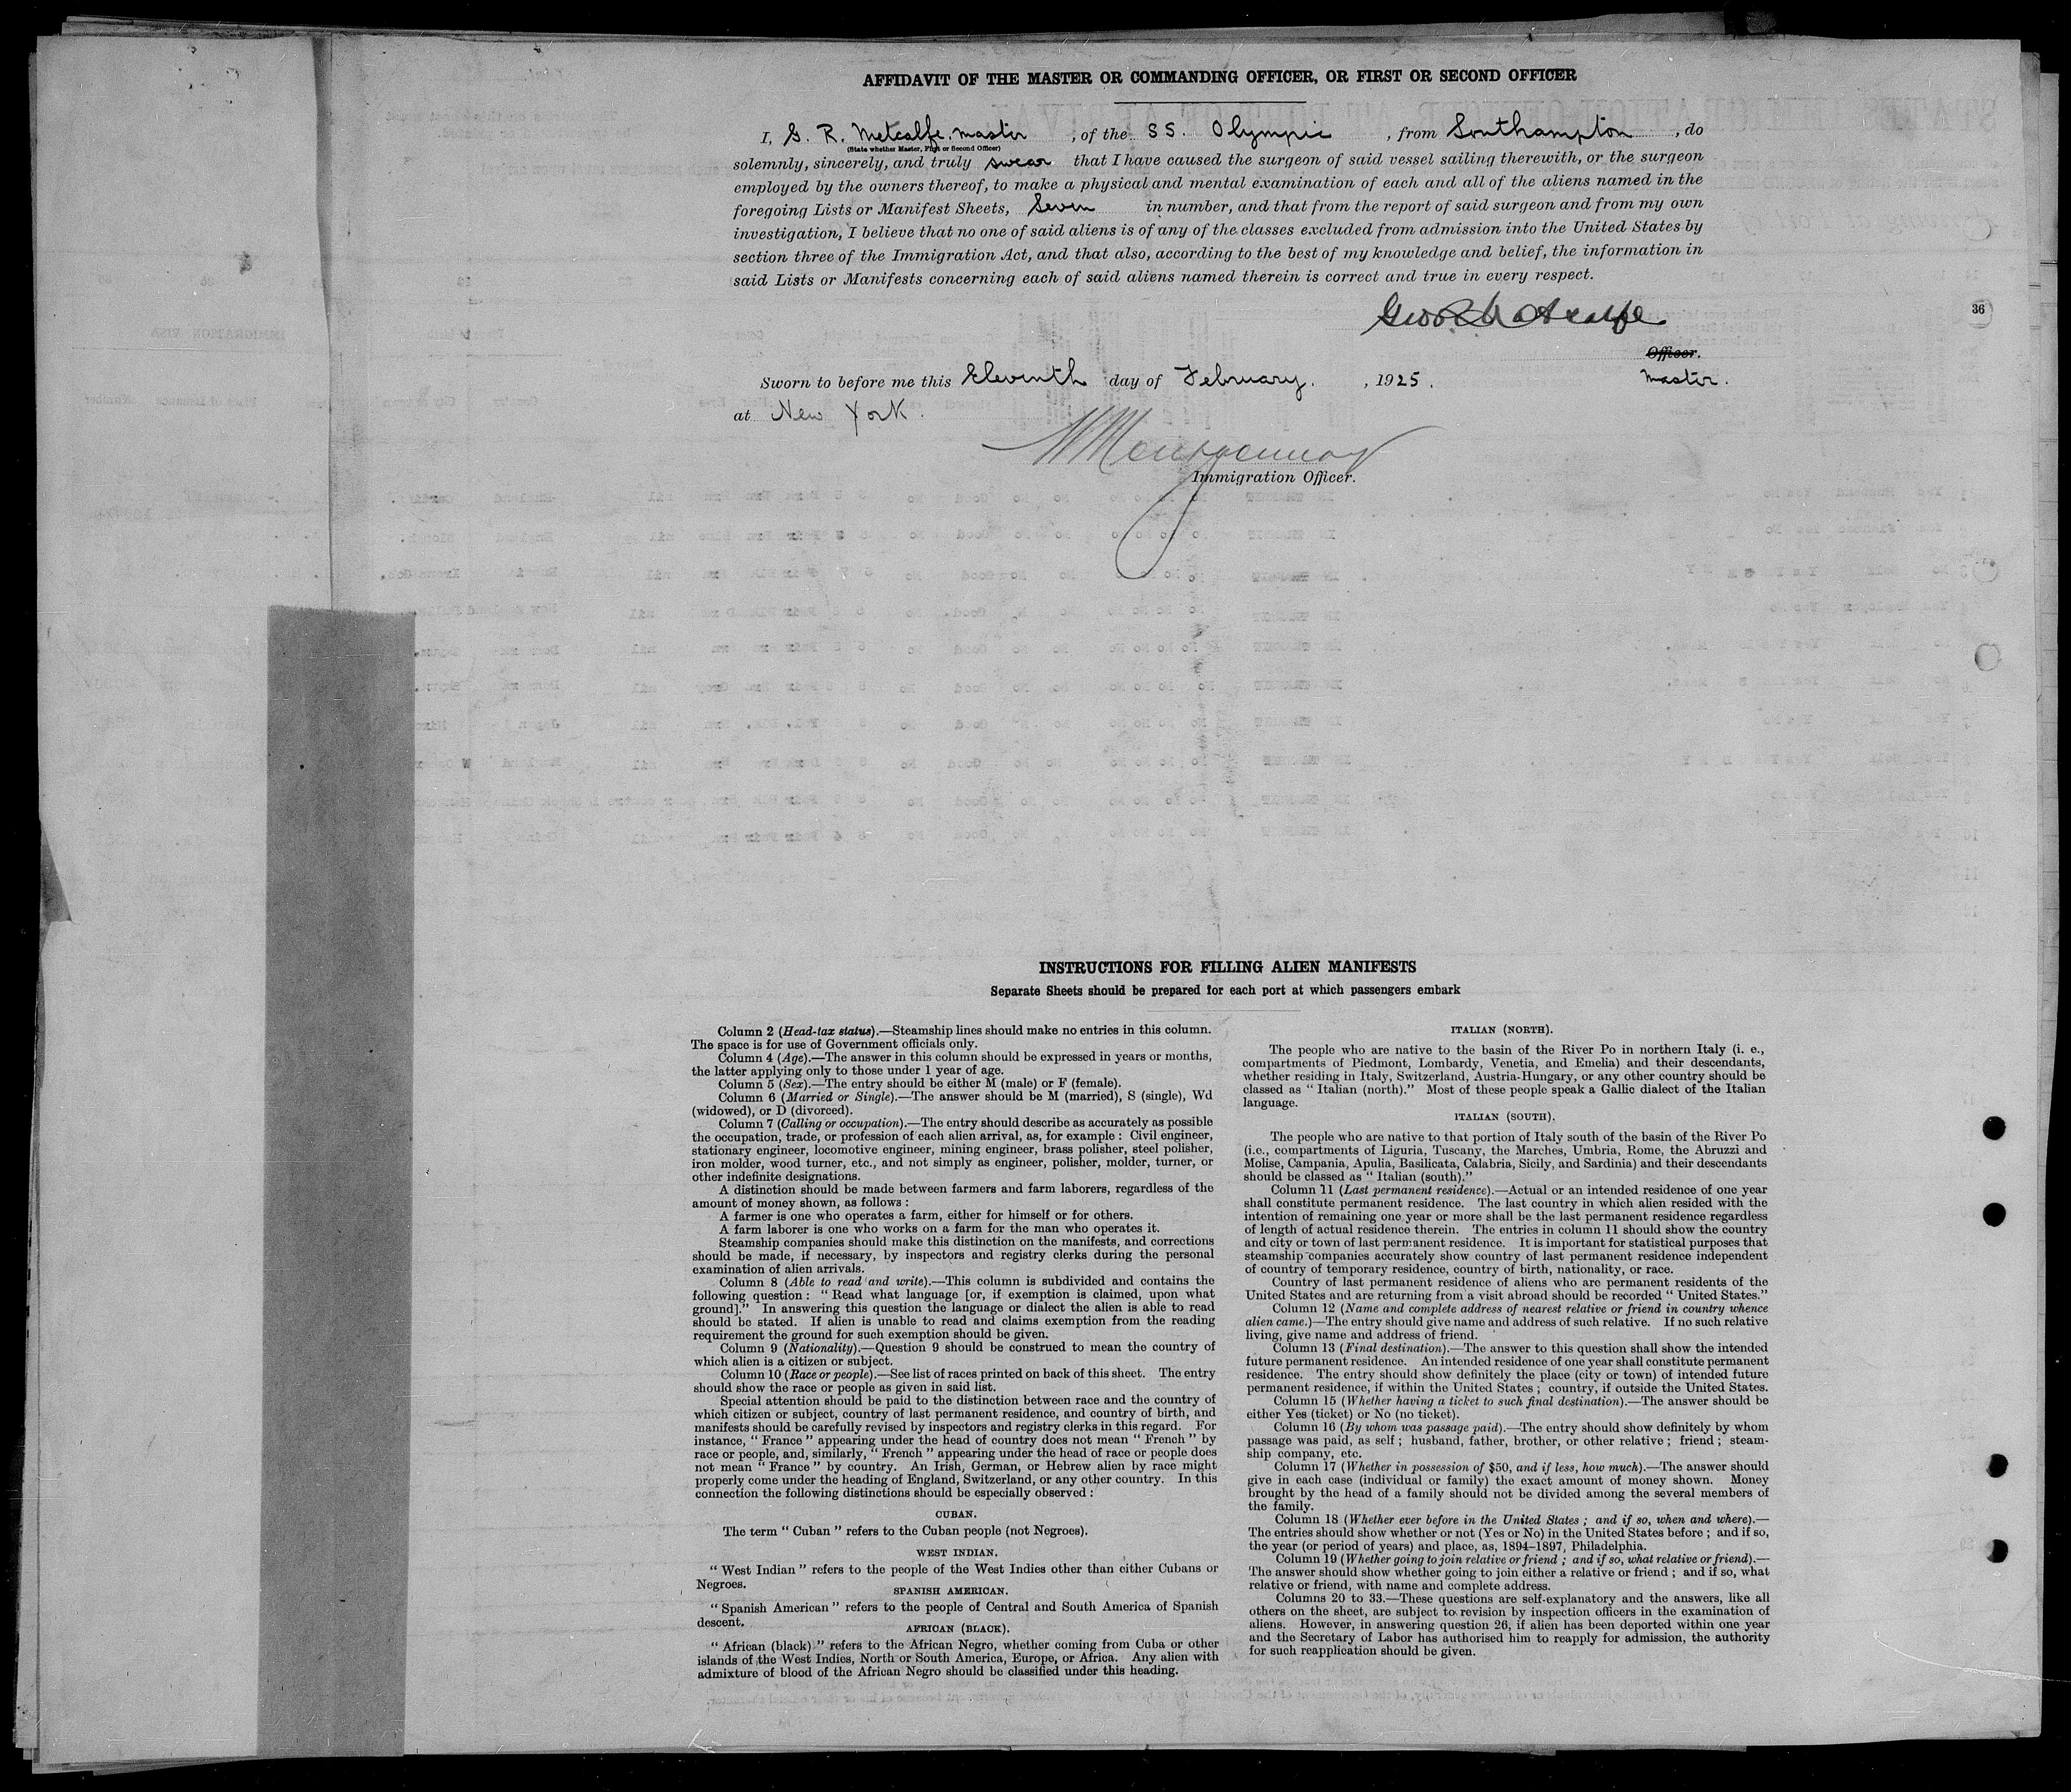 AFFIDAVIT OF THE MASTER OR COMMANDING OFFICER, OR FIRST OR SECOND OFFICER
I, G. R. Metcalfe, master , of the SS. Olympic , from Southampton , do
(State whether Master, First or Second Officer)
solemnly, sincerely, and truly swear that I have caused the surgeon of said vessel sailing therewith, or the surgeon
employed by the owners thereof, to make a physical and mental examination of each and all of the aliens named in the
foregoing Lists or Manifest Sheets, Seven in number, and that from the report of said surgeon and from my own
investigation, I believe that no one of said aliens is of any of the classes excluded from admission into the United States by
section three of the Immigration Act, and that also, according to the best of my knowledge and belief, the information in
said Lists or Manifests concerning each of said aliens named therein is correct and true in every respect.
Geo R Metcalfe
36
Officer.
Sworn to before me this Eleventh day of February. , 1925.
Master.
at New York.
Immigration Officer.
INSTRUCTIONS FOR FILLING ALIEN MANIFESTS
Separate Sheets should be prepared for each port at which passengers embark
Column 2 (Head-tax status).—Steamship lines should make no entries in this column.
The space is for use of Government officials only.
Column 4 (Age).—The answer in this column should be expressed in years or months,
the latter applying only to those under 1 year of age.
Column 5 (Sex).—The entry should be either M (male) or F (female).
Column 6 (Married or Single).—The answer should be M (married), S (single), Wd
(widowed), or D (divorced).
Column 7 (Calling or occupation).—The entry should describe as accurately as possible
the occupation, trade, or profession of each alien arrival, as, for example : Civil engineer,
stationary engineer, locomotive engineer, mining engineer, brass polisher, steel polisher,
iron molder, wood turner, etc., and not simply as engineer, polisher, molder, turner, or
other indefinite designations.
A distinction should be made between farmers and farm laborers, regardless of the
amount of money shown, as follows :
A farmer is one who operates a farm, either for himself or for others.
A farm laborer is one who works on a farm for the man who operates it.
Steamship companies should make this distinction on the manifests, and corrections
should be made, if necessary, by inspectors and registry clerks during the personal
examination of alien arrivals.
Column 8 (Able to read and write).—This column is subdivided and contains the
following question : “ Read what language [or, if exemption is claimed, upon what
ground].” In answering this question the language or dialect the alien is able to read
should be stated. If alien is unable to read and claims exemption from the reading
requirement the ground for such exemption should be given.
Column 9 (Nationality).—Question 9 should be construed to mean the country of
which alien is a citizen or subject.
Column 10 (Race or people).—See list of races printed on back of this sheet. The entry
should show the race or people as given in said list.
Special attention should be paid to the distinction between race and the country of
which citizen or subject, country of last permanent residence, and country of birth, and
manifests should be carefully revised by inspectors and registry clerks in this regard. For
instance, “ France ” appearing under the head of country does not mean “ French ” by
race or people, and, similarly, “ French ” appearing under the head of race or people does
not mean “ France ” by country. An Irish, German, or Hebrew alien by race might
properly come under the heading of England, Switzerland, or any other country. In this
connection the following distinctions should be especially observed :
CUBAN.
The term “ Cuban ” refers to the Cuban people (not Negroes).
WEST INDIAN.
“ West Indian ” refers to the people of the West Indies other than either Cubans or
Negroes.
SPANISH AMERICAN.
“ Spanish American ” refers to the people of Central and South America of Spanish
descent.
AFRICAN (BLACK).
“ African (black) ” refers to the African Negro, whether coming from Cuba or other
islands of the West Indies, North or South America, Europe, or Africa. Any alien with
admixture of blood of the African Negro should be classified under this heading.
ITALIAN (NORTH).
The people who are native to the basin of the River Po in northern Italy (i. e.,
compartments of Piedmont, Lombardy, Venetia, and Emelia) and their descendants,
whether residing in Italy, Switzerland, Austria-Hungary, or any other country should be
classed as “ Italian (north).” Most of these people speak a Gallic dialect of the Italian
language.
ITALIAN (SOUTH).
The people who are native to that portion of Italy south of the basin of the River Po
(i.e., compartments of Liguria, Tuscany, the Marches, Umbria, Rome, the Abruzzi and
Molise, Campania, Apulia, Basilicata, Calabria, Sicily, and Sardinia) and their descendants
should be classed as “ Italian (south).”
Column 11 (Last permanent residence).—Actual or an intended residence of one year
shall constitute permanent residence. The last country in which alien resided with the
intention of remaining one year or more shall be the last permanent residence regardless
of length of actual residence therein. The entries in column 11 should show the country
and city or town of last permanent residence. It is important for statistical purposes that
steamship companies accurately show country of last permanent residence independent
of country of temporary residence, country of birth, nationality, or race.
Country of last permanent residence of aliens who are permanent residents of the
United States and are returning from a visit abroad should be recorded “ United States.”
Column 12 (Name and complete address of nearest relative or friend in country whence
alien came.)—The entry should give name and address of such relative. If no such relative
living, give name and address of friend.
Column 13 (Final destination).—The answer to this question shall show the intended
future permanent residence. An intended residence of one year shall constitute permanent
residence. The entry should show definitely the place (city or town) of intended future
permanent residence, if within the United States ; country, if outside the United States.
Column 15 (Whether having a ticket to such final destination).—The answer should be
either Yes (ticket) or No (no ticket).
Column 16 (By whom was passage paid).—The entry should show definitely by whom
passage was paid, as self ; husband, father, brother, or other relative ; friend ; steam-
ship company, etc.
Column 17 (Whether in possession of $50, and if less, how much).—The answer should
give in each case (individual or family) the exact amount of money shown. Money
brought by the head of a family should not be divided among the several members of
the family.
Column 18 (Whether ever before in the United States ; and if so, when and where).—
The entries should show whether or not (Yes or No) in the United States before ; and if so,
the year (or period of years) and place, as, 1894–1897, Philadelphia.
Column 19 (Whether going to join relative or friend ; and if so, what relative or friend).—
The answer should show whether going to join either a relative or friend ; and if so, what
relative or friend, with name and complete address.
Columns 20 to 33.—These questions are self-explanatory and the answers, like all
others on the sheet, are subject to revision by inspection officers in the examination of
aliens. However, in answering question 26, if alien has been deported within one year
and the Secretary of Labor has authorised him to reapply for admission, the authority
for such reapplication should be given.